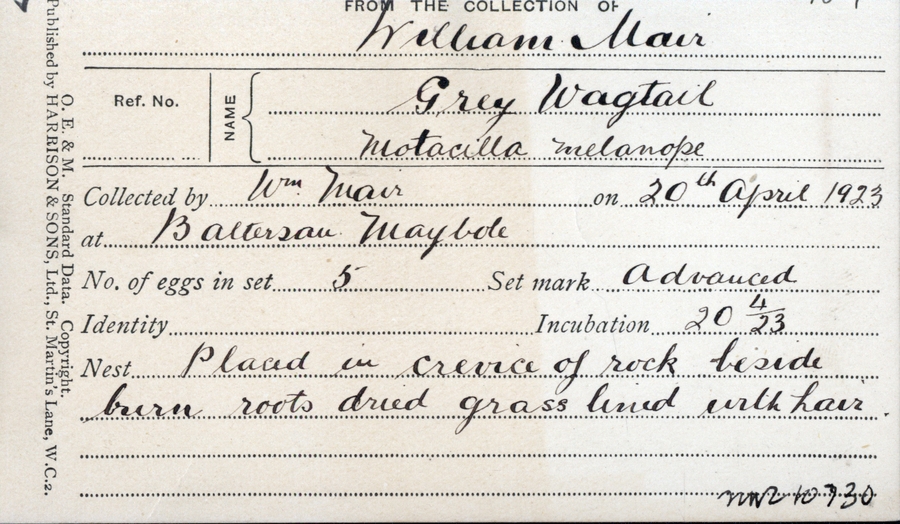 FROM THE COLLECTION OF
William Mair
Ref. No.
NAME
Grey Wagtail
Motacilla melanope
Collected by Wm Mair on 20th April 1923
at Baltersan Maybole
No. of eggs in set 5 Set mark Advanced
Identity Incubation 20 4/23
Nest Placed in crevice of rock beside
burn roots dried grass lined with hair.
10730
O. E. & M. Standard Data. Copyright.
Published by HARRISON & SONS, Ltd., St. Martin's Lane, W.C.2.